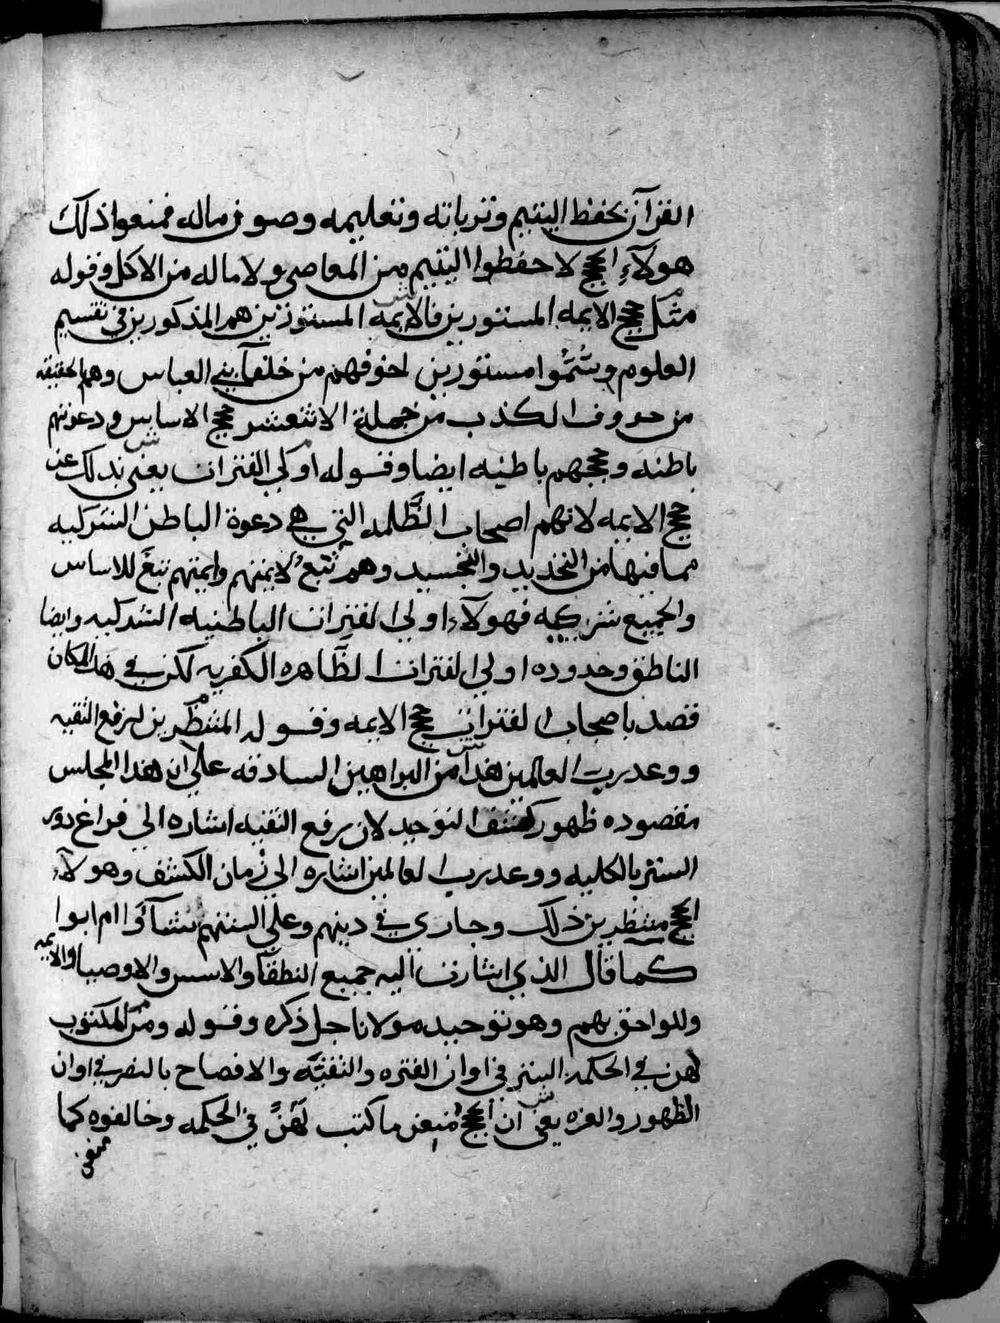 القرآن بحفظ اليتيم وترباته وتعليمه وصون ماله فمنعوا ذلك
هولآء الحجج لا حفظوا اليتيم من المعاصي ولا ماله من الاكل وقوله
مثل حجج الايمه المستورين فالايمه المستورين هم المذكورين في تقسيم
العلوم وسُمُّوا مستورين لخوفهم من خلفآ بني العباس وهم الحقيقه
من حروف الكذب من جملة الاثنعشر حجج الاساس ودعوتهم
باطنه وحججهم باطنيه ايضا وقوله اولي الفترات يعني بذلك عن
حجج الايمه لانهم اصحاب الظُّلمه التي هي دعوة الباطن الشركيه
مما فيها من التحديد والتجسيد وهم تبَع لايمتهم وايمتهم تبَع للاساس
والجميع شركيه فهولآء اولي الفترات الباطنيه الشركيه وايضا
الناطق وحدوده اولي الفترات الظَّاهره الكفريه لكن في هذا المكان
قصد باصحاب الفترات حجج الايمه وقوله المنتظرين لرفع التقيه
ووعد رب العالمين هذا من البراهين السادقه على ان هذا المجلس
مقصوده ظهور كشف التوحيد لان برفع التقيه اشاره الي فراغ دور
الستر بالكليه ووعد رب العالمين اشاره الي زمان الكشف وهولآء
الحجج منتظرين ذلك وجاري في دينهم وعلي السنتهم شآئوا ام ابوا
كما قال الذي اشارت اليه جميع النطقآ والاسس والاوصيا والايمه
وللواحق بهم وهو توحيده مولانا جل ذكره وقوله ومن المكتوب
لهن في الحكمه الستر في اوان الفتره والتقيَّه والافصاح بالنصر في اوان
الظهور والعزه يعني ان الحجج منعن ما كتب لهَنَّ في الحكمه وخالفوه كما